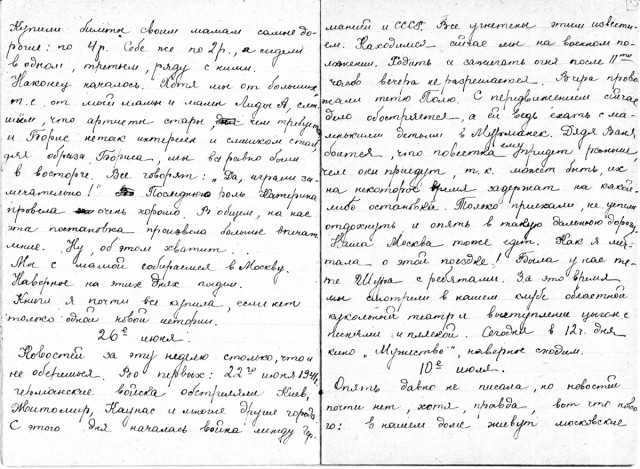 Купили билеты своим мамам самые до-
рогие: по 4 р. Себе же по 2 р., а сидели
в одном, третьем, ряду с ними.
Наконец началось. Хотя мы от больших,
т.е. от моей мамы и мамы Лиды А. слы-
шали, что артисты стары, чем требует
и Борис не так интересен и слишком стар,
для образа Бориса, мы всё равно были
в восторге. Все говорят: „Да, играли за-
мечательно!" Последнюю роль Катерина
провела очень хорошо. В общем, на нас
эта постановка произвела большое впечат-
ление. Ну, об этом хватит...
Мы с мамой собираемся в Москву.
Наверное на этих днях поедем.
Книги я почти все купила, если нет
только одной новой истории.
26е июня.
Новостей за эту неделю столько, что и
не оберешься. Во первых: 22го июня 1941г.
германские войска обстреляли Киев,
Житомир, Каунас и многие другие города.
С этого дня началась война между Гер-
манией и СССР. Все угнетены этим извести-
ем. Находимся сейчас мы на военном по-
ложении. Ходить и зажигать огня после 11ти
часов вечера не разрешается. Вчера прово-
жали тетю Полю. С передвижением сейчас
дело обостряется, а ей ведь ехать с ма-
ленькими детьми в Мурманск. Дядя Ваня
боится, что повестка ему придет раньше
чем они приедут, т.к. может быть, их
на некоторое время задержат на какой
либо остановке. Только приехали, не успели
отдохнуть и опять в такую далекую дорогу.
Наша Москва тоже едет. Как я меч-
тала о этой поездке! Была у нас те-
тя Шура с ребятами. За это время
мы смотрели в нашем клубе областной
кукольный театр и выступление цыган с
песнями и пляской. Сегодня в 12 ч. дня
кино „Мужество", наверное сходим.
10е июля.
Опять давно не писала, но новостей
почти нет, хотя, правда, вот что ново-
го: в нашем доме живут московские